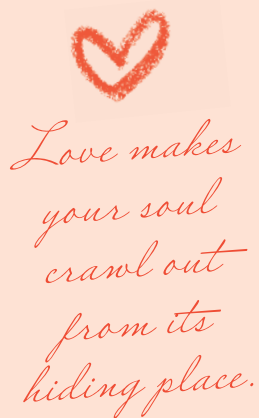 Love makes
your soul
crawl out
from its
hiding place.